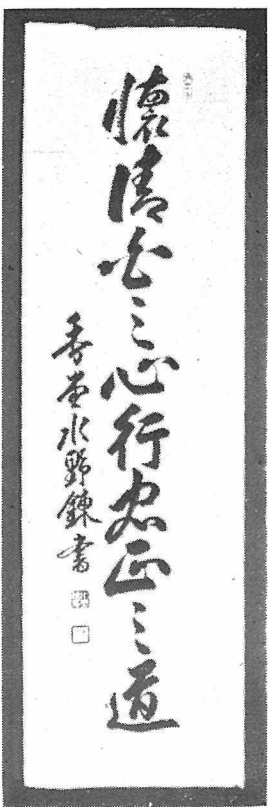 懷清白之心行忠正之道
香堂水野錬書